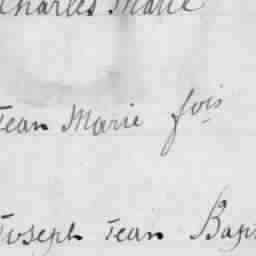 Charles Marie
Jean Marie fois
Joseph Jean Bap